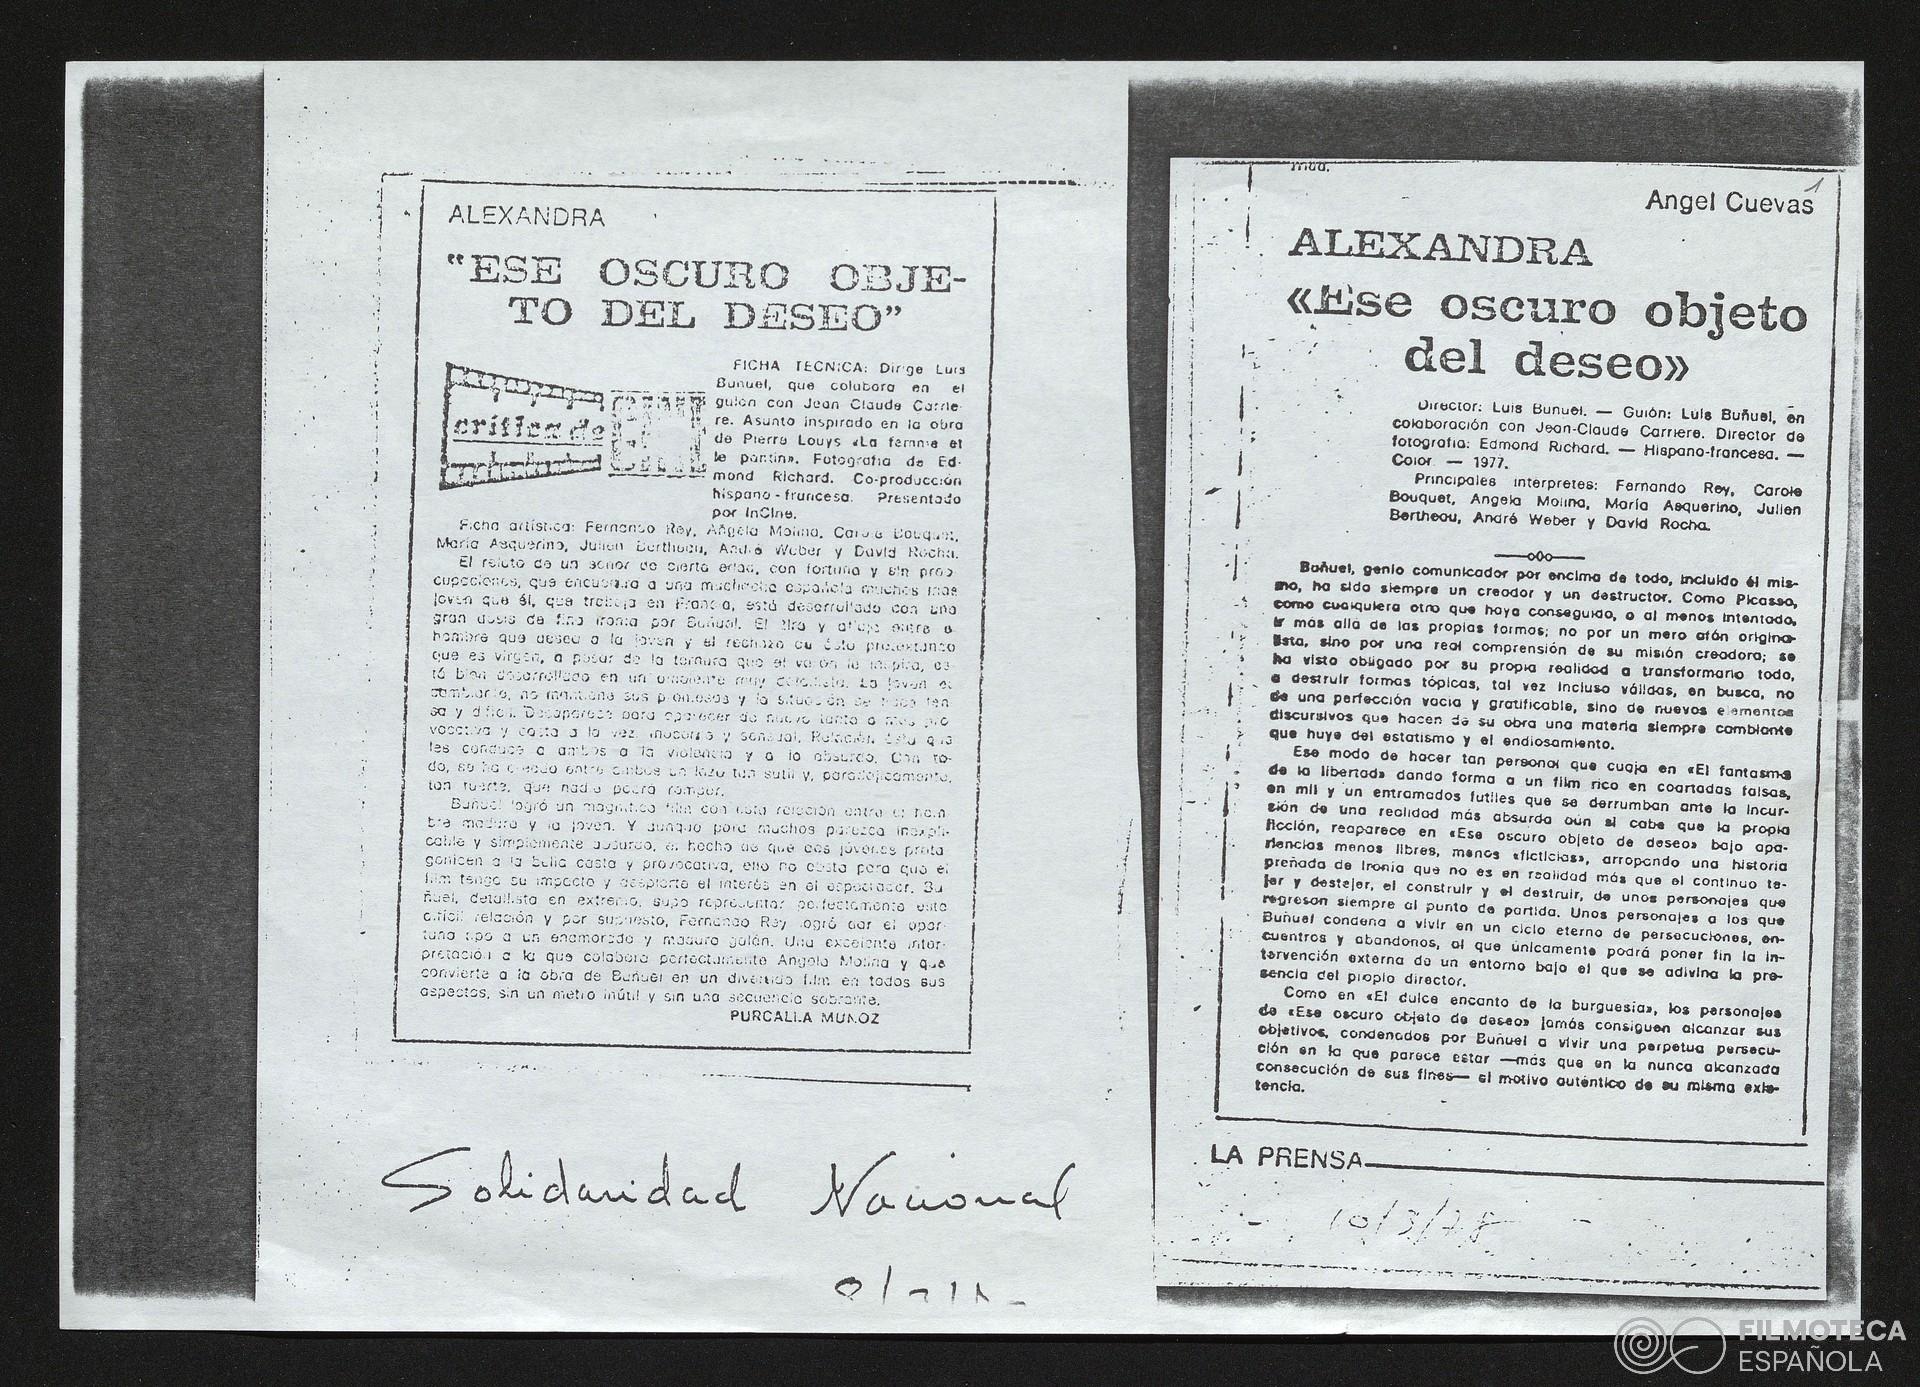 ALEXANDRA
"ESE OSCURO OBJE-
TO DEL DESEO"
crítica de
FICHA TECNICA: Dirige Luis
Buñuel, que colabora en el
guión con Jean Claude Carrie-
re. Asunto inspirado en la obra
de Pierre Louys «La femme et
le pantin». Fotografía de Ed-
mond Richard. Co-producción
hispano-francesa. Presentado
por InCine.
Ficha artística: Fernando Rey, Angela Molina, Carole Bouquet,
María Asquerino, Julien Bertheau, André Weber y David Rocha.
El relato de un señor de cierta edad, con fortuna y sin preo-
cupaciones, que encuentra a una muchacha española mucho más
joven que él, que trabaja en Francia, está desarrollado con una
gran dosis de fina ironía por Buñuel. El tira y afloja entre el
hombre que desea a la joven y el rechazo de ésta pretextando
que es virgen, a pesar de la ternura que el varón le inspira, es-
tá bien desarrollado en un ambiente muy detallista. La joven es
cambiante, no mantiene sus promesas y la situación se hace ten-
sa y difícil. Desaparece para aparecer de nuevo tanto o más pro-
vocativa y casta a la vez, inocente y sensual. Relación ésta que
les conduce a ambos a la violencia y a lo absurdo. Con to-
do, se ha creado entre ambos un lazo tan sutil y, paradójicamente,
tan fuerte, que nadie podrá romper.
Buñuel logró un magnífico film con esta relación entre el hom-
bre maduro y la joven. Y aunque para muchos parezca inexpli-
cable y simplemente absurdo, el hecho de que dos jóvenes prota-
gonicen a la bella casta y provocativa, ello no basta para que el
film tenga su impacto y despierte el interés en el espectador. Bu-
ñuel, detallista en extremo, supo representar perfectamente esta
difícil relación y por supuesto, Fernando Rey logró dar el opor-
tuno tipo a un enamorado y maduro galán. Una excelente inter-
pretación a la que colabora perfectamente Angela Molina y que
convierte a la obra de Buñuel en un divertido film en todos sus
aspectos, sin un metro inútil y sin una secuencia sobrante.
PURCALLA MUÑOZ
Solidaridad Nacional
Angel Cuevas
1
ALEXANDRA
«Ese oscuro objeto
del deseo»
Director: Luis Buñuel. — Guión: Luis Buñuel, en
colaboración con Jean-Claude Carriere. Director de
fotografía: Edmond Richard. — Hispano-francesa. —
Color — 1977.
Principales intérpretes: Fernando Rey, Carole
Bouquet, Angela Molina, María Asquerino, Julien
Bertheau, André Weber y David Rocha.
Buñuel, genio comunicador por encima de todo, incluido él mis-
mo, ha sido siempre un creador y un destructor. Como Picasso,
como cualquiera otro que haya conseguido, o al menos intentado,
ir más allá de las propias formas; no por un mero afán origina-
lista, sino por una real comprensión de su misión creadora; se
ha visto obligado por su propia realidad a transformarlo todo,
a destruir formas tópicas, tal vez incluso válidas, en busca, no
de una perfección vacía y gratificable, sino de nuevos elementos
discursivos que hacen de su obra una materia siempre cambiante
que huye del estatismo y el endiosamiento.
Ese modo de hacer tan personal que cuaja en «El fantasma
de la libertad» dando forma a un film rico en coartadas falsas,
en mil y un entramados fútiles que se derrumban ante la incur-
sión de una realidad más absurda aún si cabe que la propia
ficción, reaparece en «Ese oscuro objeto de deseo» bajo apa-
riencias menos libres, menos «ficticias», arropando una historia
preñada de ironía que no es en realidad más que el continuo te-
jer y destejer, el construir y el destruir, de unos personajes que
regresan siempre al punto de partida. Unos personajes a los que
Buñuel condena a vivir en un ciclo eterno de persecuciones, en-
cuentros y abandonos, al que únicamente podrá poner fin la in-
tervención externa de un entorno bajo el que se adivina la pre-
sencia del propio director.
Como en «El dulce encanto de la burguesía», los personajes
de «Ese oscuro objeto de deseo» jamás consiguen alcanzar sus
objetivos, condenados por Buñuel a vivir una perpetua persecu-
ción en la que parece estar —más que en la nunca alcanzada
consecución de sus fines— el motivo auténtico de su misma exis-
tencia.
LA PRENSA
10/3/78
FILMOTECA
ESPAÑOLA